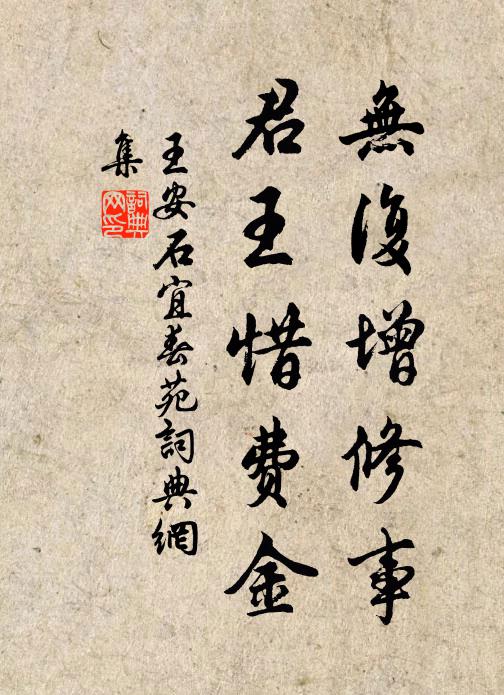 無復增修事
君王惜費金
王安石宜春苑詞典網
集
詞典网印